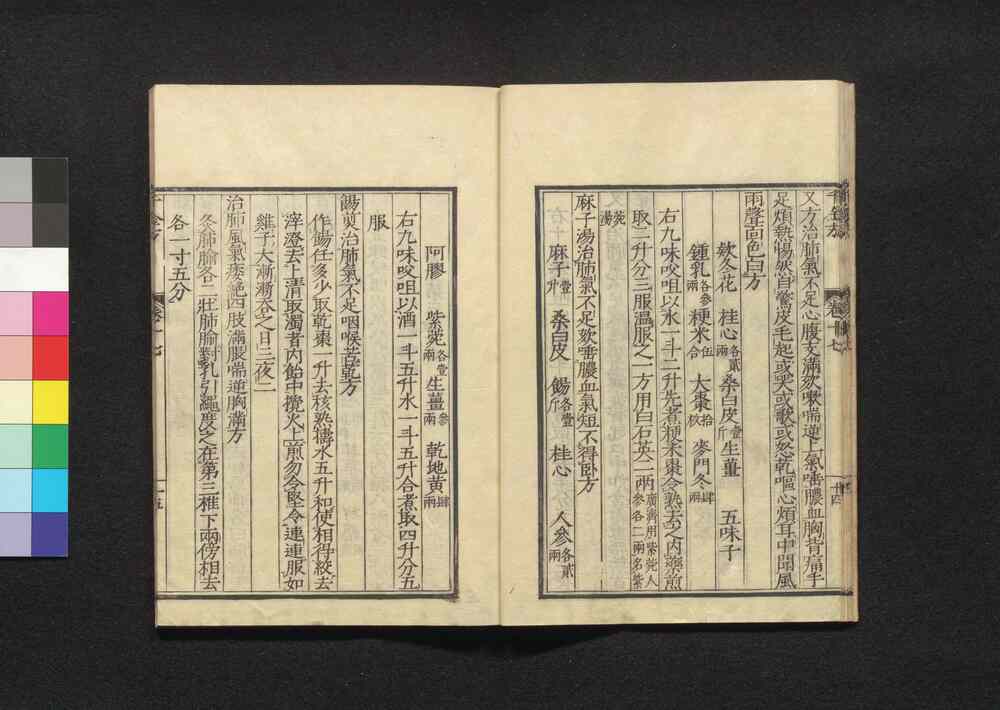 又方治肺氣不足心腹支滿欬嗽喘逆上氣唾膿血胸背痛手
足煩熱惕然自驚皮毛起或哭或歌或怒乾嘔心煩耳中聞風
雨聲面色白方
款冬花 桂心各貳兩 桑白皮壹斤 生薑 五味子
鍾乳各參兩 粳米伍合 大棗拾枚 麥門冬肆兩
右九味㕮咀以水一斗二升先煮粳米棗令熟去之内藥煎
取三升分三服溫服之一方用白石英二兩廣濟用紫菀人參各二兩名紫
菀湯
麻子湯治肺氣不足欬唾膿血氣短不得臥方
麻子壹升 桑白皮 餳各壹斤 桂心 人參各貳兩
阿膠 紫菀各壹兩 生薑參兩 乾地黃肆兩
右九味㕮咀以酒一斗五升水一斗五升合煮取四升分五
服
餳煎治肺氣不足咽喉苦乾方
作餳任多少取乾棗一升去核熟擣水五升和使相得絞去
滓澄去上清取濁者内飴中攪火上煎勿令堅令連連服如
雞子大漸漸吞之日三夜二
治肺風氣痿絶四肢滿脹喘逆胸滿方
灸肺腧各二壯肺腧對乳引繩度之在第三椎下兩傍相去
各一寸五分